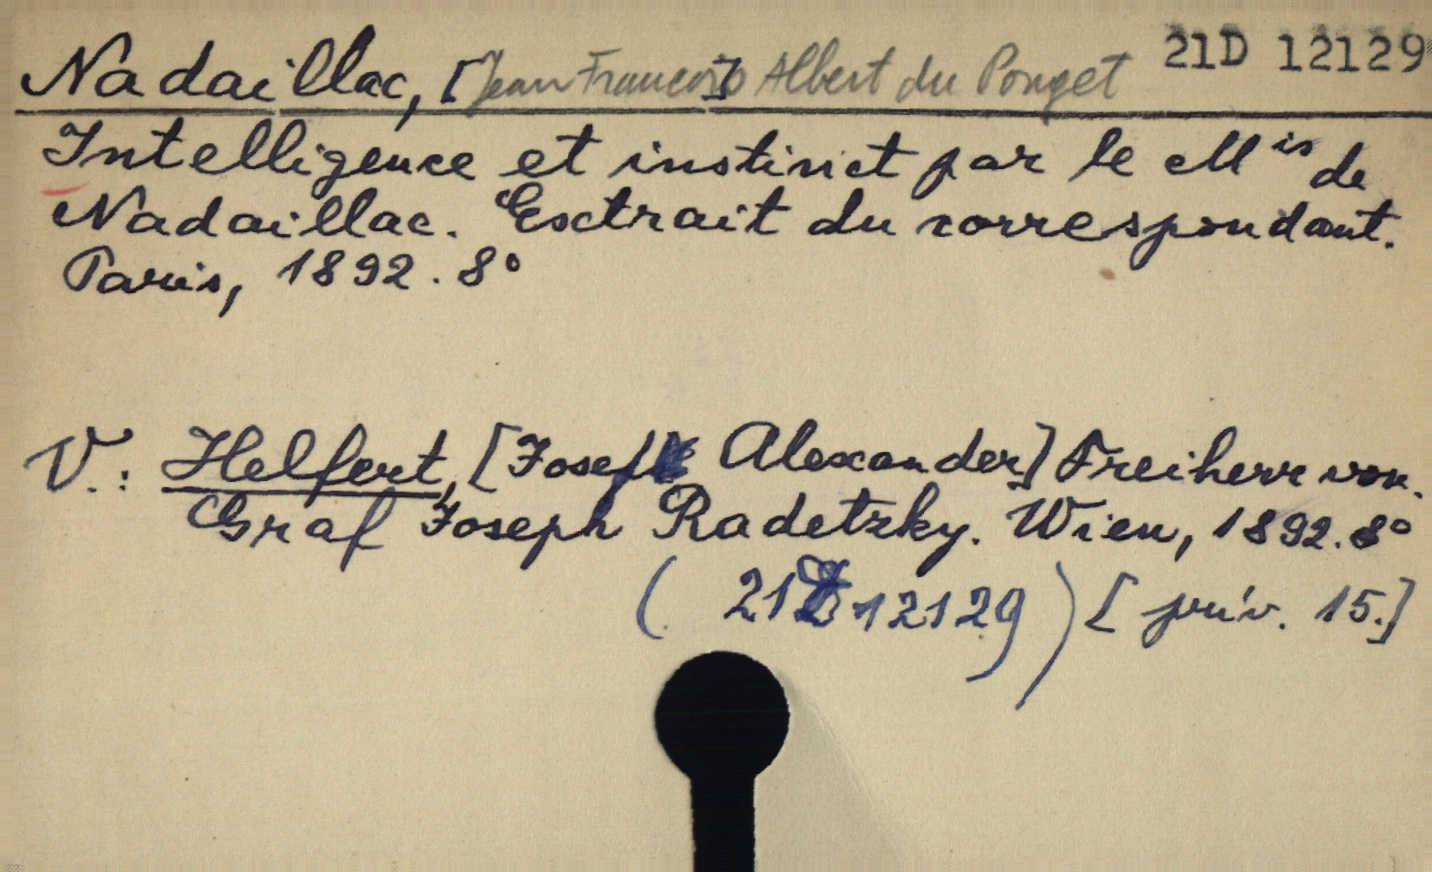 Nadaillac, [Jean Francois] Albert du Pouget 21D 12129
Intelligence et instinct par le Mis de
Nadaillac. Extrait du correspondant.
Paris, 1892. 8°
V.: Helfert, [Josef Alexander] Freiherr von.
Graf Joseph Radetzky. Wien, 1892. 8°
( 21D 12129 ) [ priv. 15.]